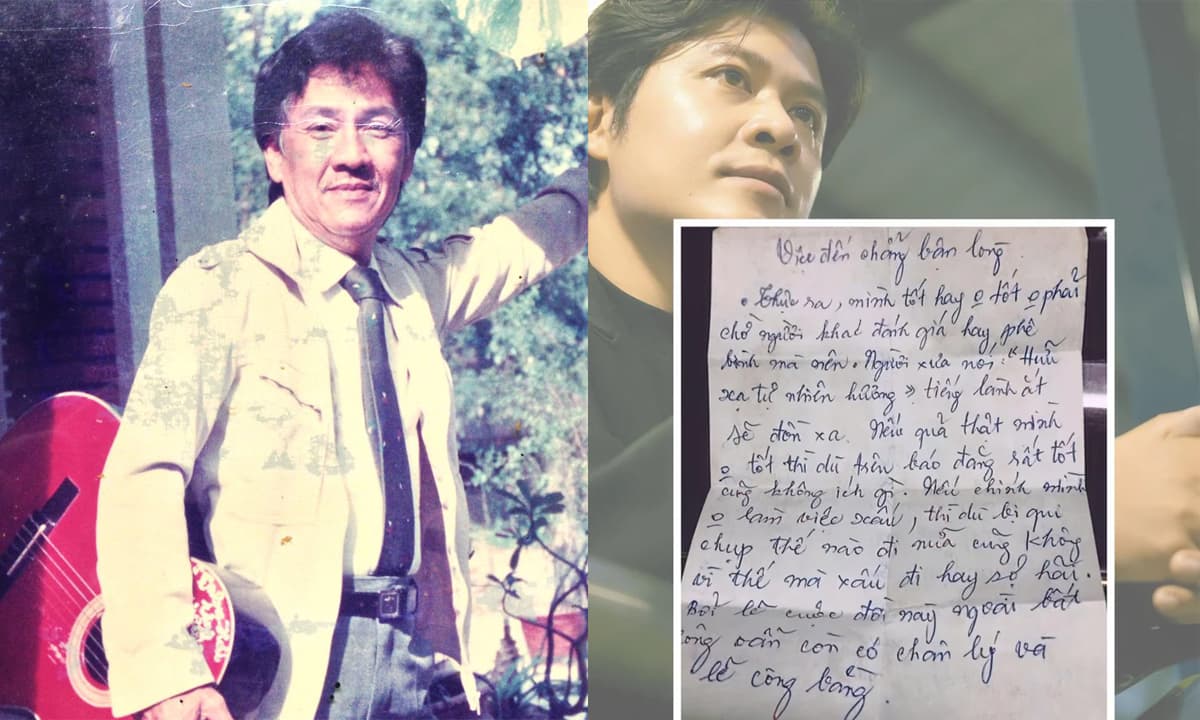 Việc đến chẳng bận lòng
. Thực ra, mình tốt hay o tốt o phải
chờ người khác đánh giá hay phê
bình mà nên. Người xưa nói: "Hữu
xạ tự nhiên hương" tiếng lành ắt
sẽ đồn xa. Nếu quả thật mình
o tốt thì dù trên báo đăng rất tốt
cũng không ích gì. Nếu chính mình
o làm việc xấu, thì dù bị qui
chụp thế nào đi nữa cũng không
vì thế mà xấu đi hay sợ hãi.
Bởi lẽ cuộc đời này ngoài bất
công vẫn còn có chân lý và
lẽ công bằng.